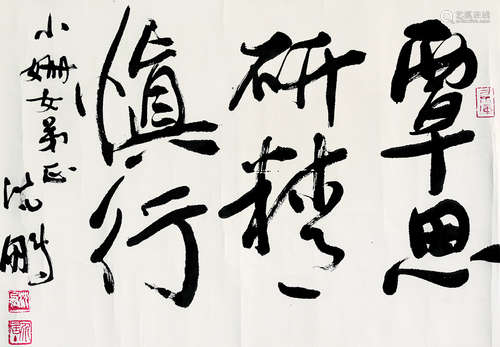 覃思
研精
慎行
小姗女弟正
浩鹏